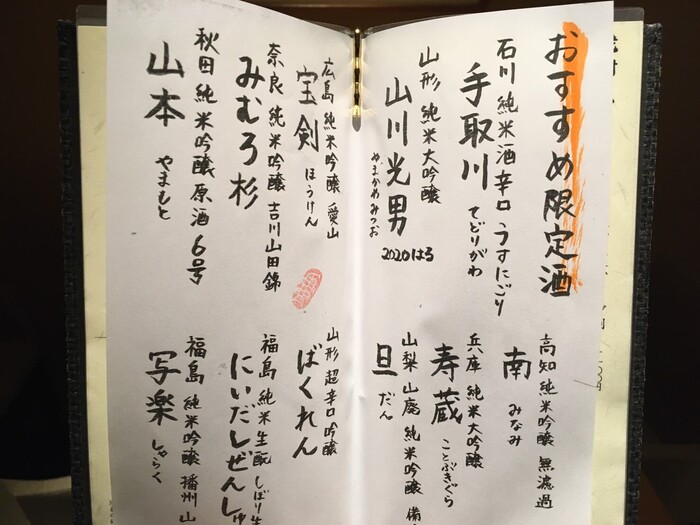 おすすめ限定酒
石川 純米酒 辛口 うすにごり
手取川
てどりがわ
山形 純米大吟醸
山川光男
やまかわみつお
2020はる
広島 純米吟醸 愛山
宝剣
ほうけん
奈良 純米吟醸 吉川山田錦
みむろ杉
秋田 純米吟醸 原酒 6号
山本
やまもと
高知 純米吟醸 無濾過
南
みなみ
兵庫 純米大吟醸
寿蔵
ことぶきぐら
山梨 山廃 純米吟醸 備
旦
だん
山形 超辛口吟醸
ばくれん
福島 純米生酛 しぼり生
にいだしぜんしゅ
福島 純米吟醸 播州 山
写楽
しゃらく